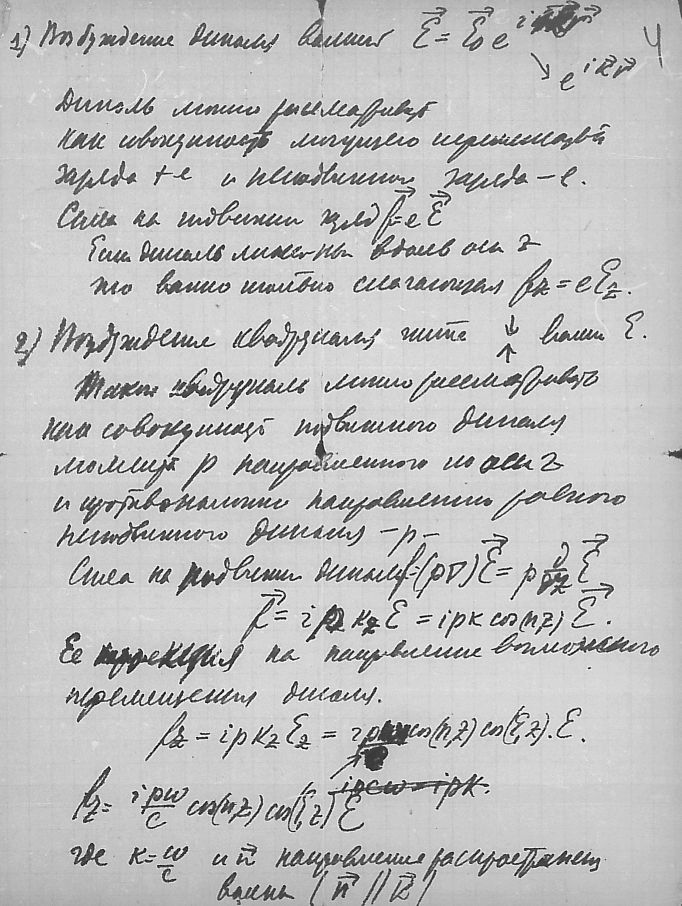 4
1) Возбуждение диполя волной $\vec{\mathcal{E}} = \vec{\mathcal{E}}_0 e^{i}$
↘ $e^{i\vec{k}\vec{r}}$
Диполь можно рассматривать
как совокупность могущего перемещаться
заряда +e и неподвижного заряда −e.
Сила на подвижный заряд $\vec{f} = e\vec{\mathcal{E}}$
Если диполь вдоль оси z
то важно только слагающая $f_z = e\mathcal{E}_z$.
2) Возбуждение квадруполя типа ↓↑ волной $\mathcal{E}$.
Такой квадруполь можно рассматривать
как совокупность подвижного диполя
момента p направленного по оси z
и противоположно направленного равного
неподвижного диполя −p−
Сила на подвижный диполь $\vec{f} = (p\nabla)\vec{\mathcal{E}} = p\frac{\partial}{\partial z}\vec{\mathcal{E}}$
$\vec{f} = i p_z k_z \mathcal{E} = ipk \cos(nz) \vec{\mathcal{E}}$.
Ее проекция на направление возможного
перемещения диполя.
$f_z = ipk_z\mathcal{E}_z = \cos(n,z) \cos(\mathcal{E},z) \cdot \mathcal{E}$.
$ip\omega = ipk$.
$f_z = \frac{ip\omega}{c} \cos(n,z) \cos(\mathcal{E},z) \mathcal{E}$
где $k = \frac{\omega}{c}$ и $\vec{n}$ направление распространения
волны ($\vec{n} \parallel \vec{k}$)